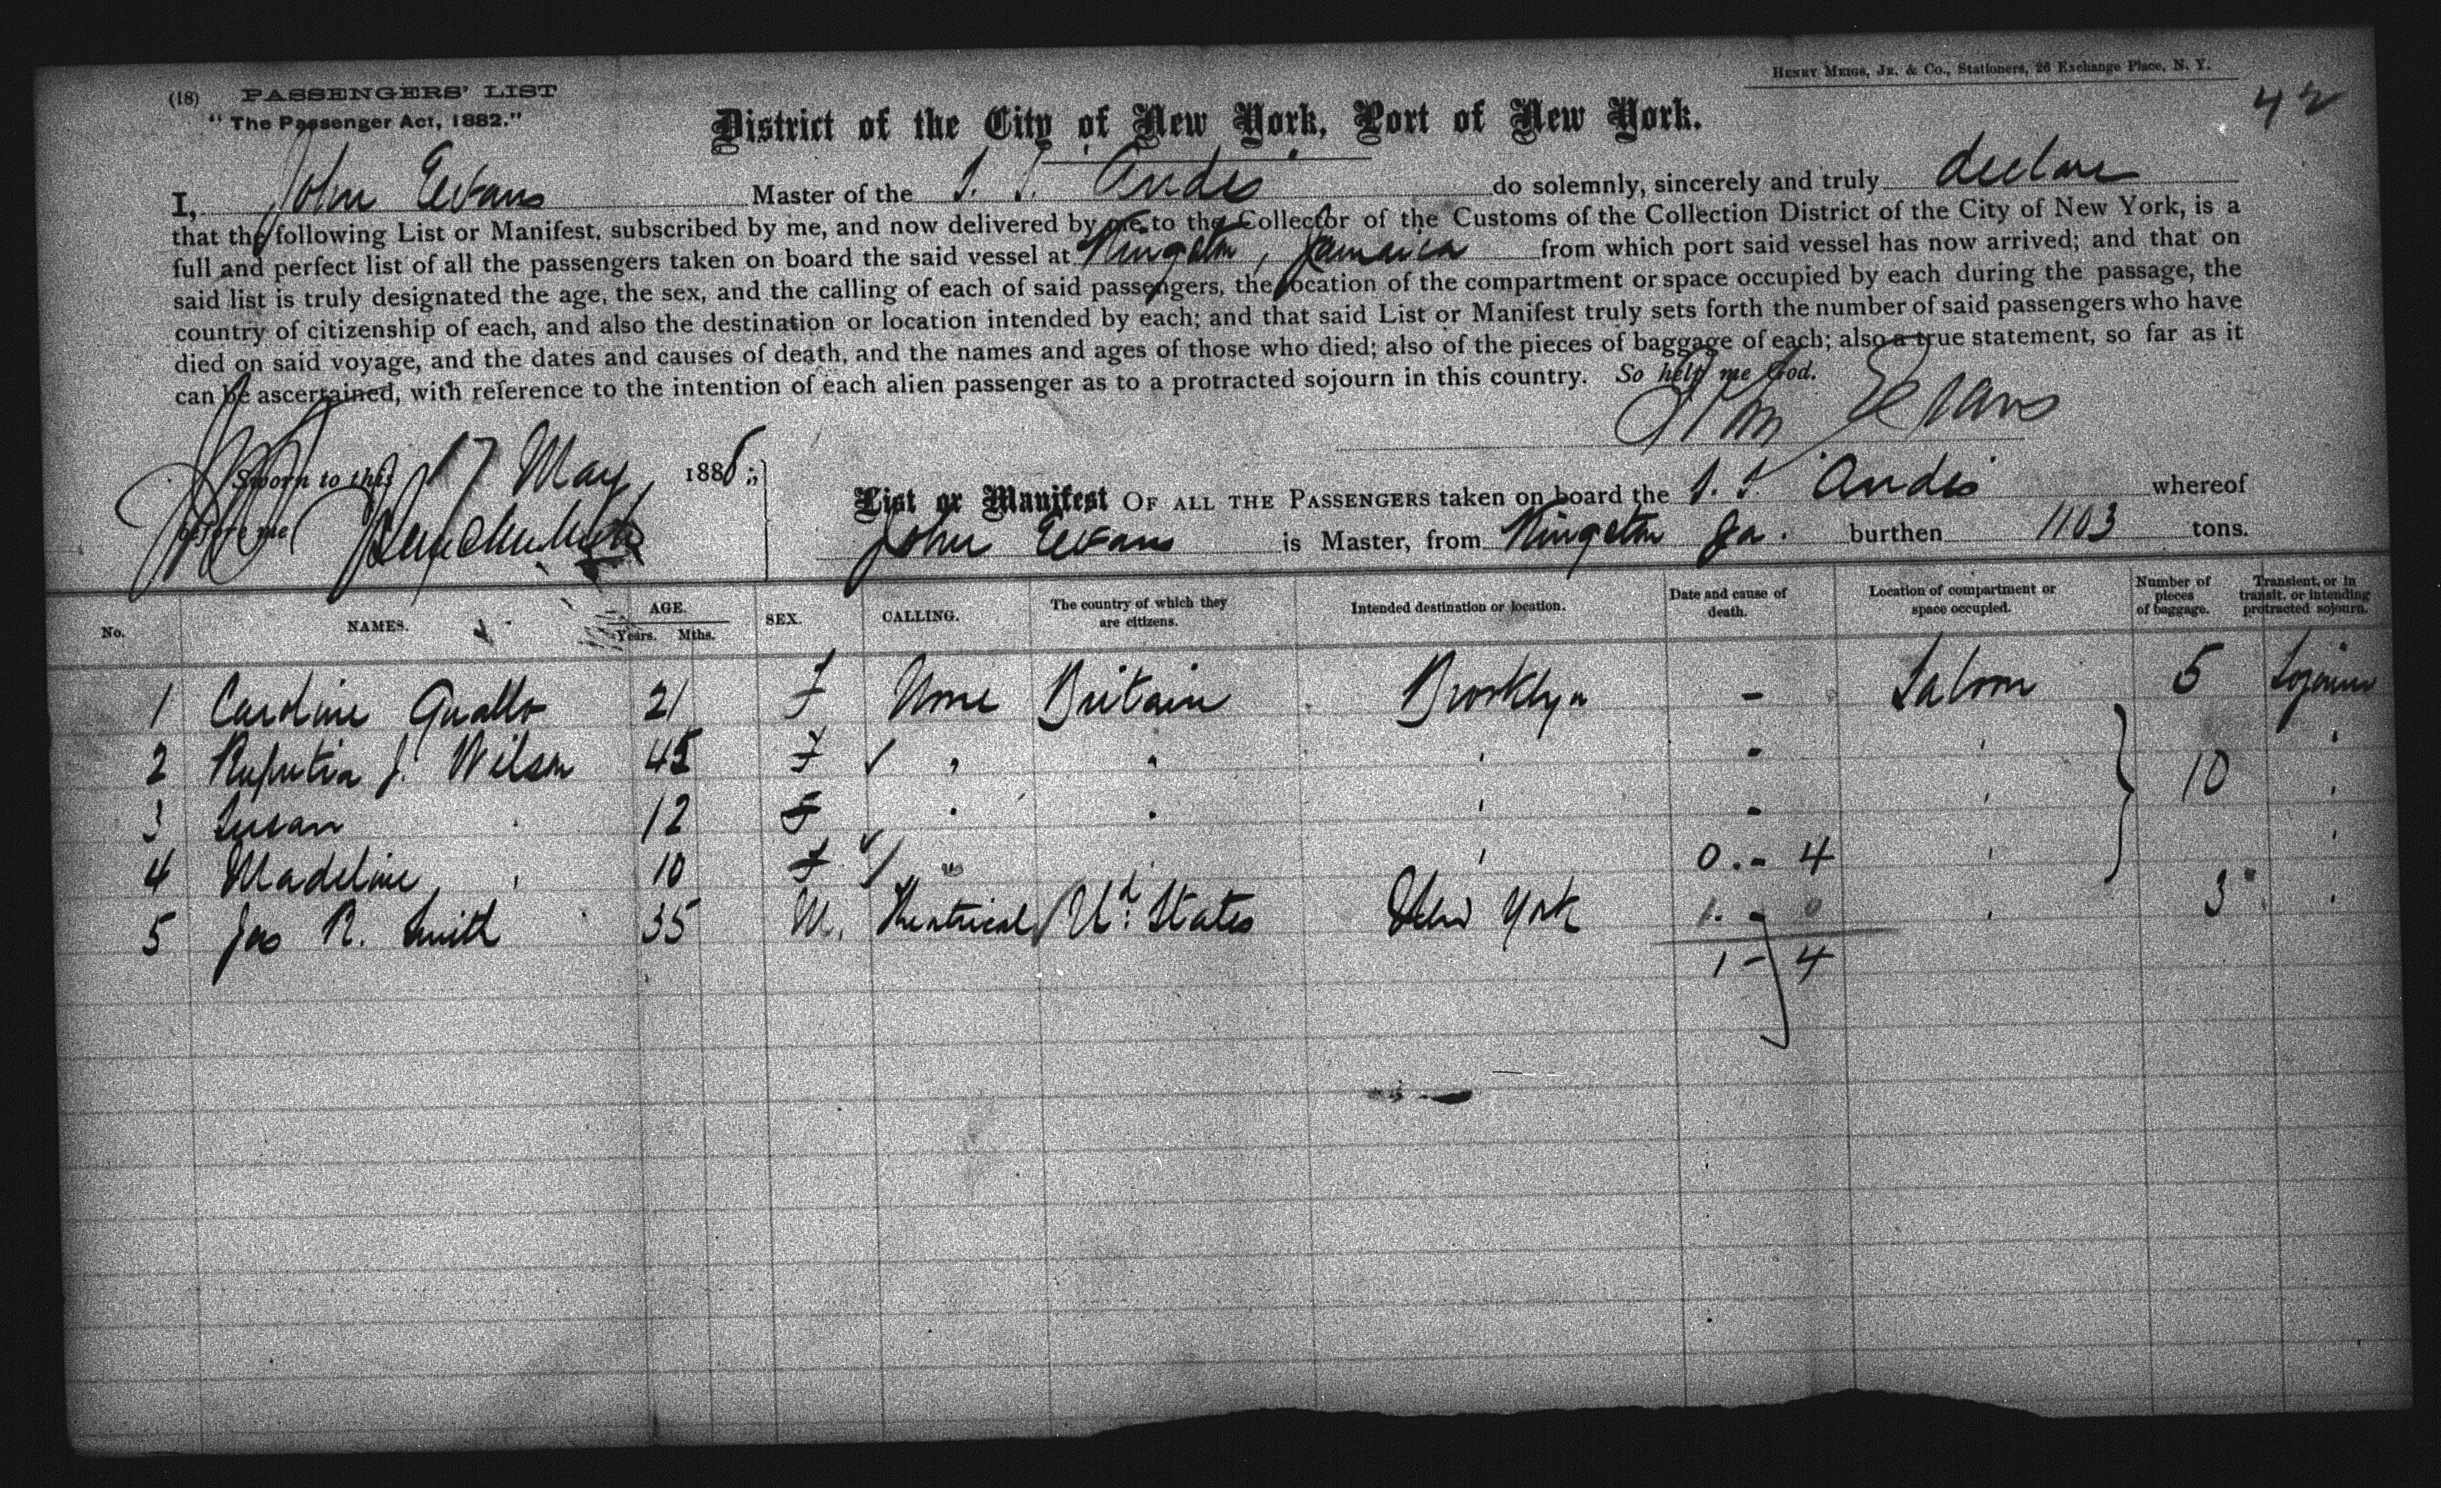 HENRY MEIGS, JR. & CO., Stationers, 26 Exchange Place, N. Y.
42
(18) PASSENGERS' LIST
"The Passenger Act, 1882."
District of the City of New York, Port of New York.
I, John Evans Master of the S. S. Andes do solemnly, sincerely and truly declare
that the following List or Manifest, subscribed by me, and now delivered by me to the Collector of the Customs of the Collection District of the City of New York, is a
full and perfect list of all the passengers taken on board the said vessel at Kingston, Jamaica from which port said vessel has now arrived; and that on
said list is truly designated the age, the sex, and the calling of each of said passengers, the location of the compartment or space occupied by each during the passage, the
country of citizenship of each, and also the destination or location intended by each; and that said List or Manifest truly sets forth the number of said passengers who have
died on said voyage, and the dates and causes of death, and the names and ages of those who died; also of the pieces of baggage of each; also a true statement, so far as it
can be ascertained, with reference to the intention of each alien passenger as to a protracted sojourn in this country. So help me God.
Jno Evans
Sworn to this 17 May 1886
before me
List or Manifest OF ALL THE PASSENGERS taken on board the S. S. Andes whereof
John Evans is Master, from Kingston Ja. burthen 1103 tons.
No. NAMES. AGE. Years. Mths. SEX. CALLING. The country of which they are citizens. Intended destination or location. Date and cause of death. Location of compartment or space occupied. Number of pieces of baggage. Transient, or in transit, or intending protracted sojourn.
1 Caroline 21 f None Britain Brooklyn - Saloon 5 Sojourn
2 J. Wilson 45 f " " " - " 10 "
3 Susan " 12 f " " " - " "
4 Madeline " 10 f " " " 0.-4 " "
5 Jas R. Smith 35 M. Theatrical Ud. States New York 1.-0 " 3 "
1-4